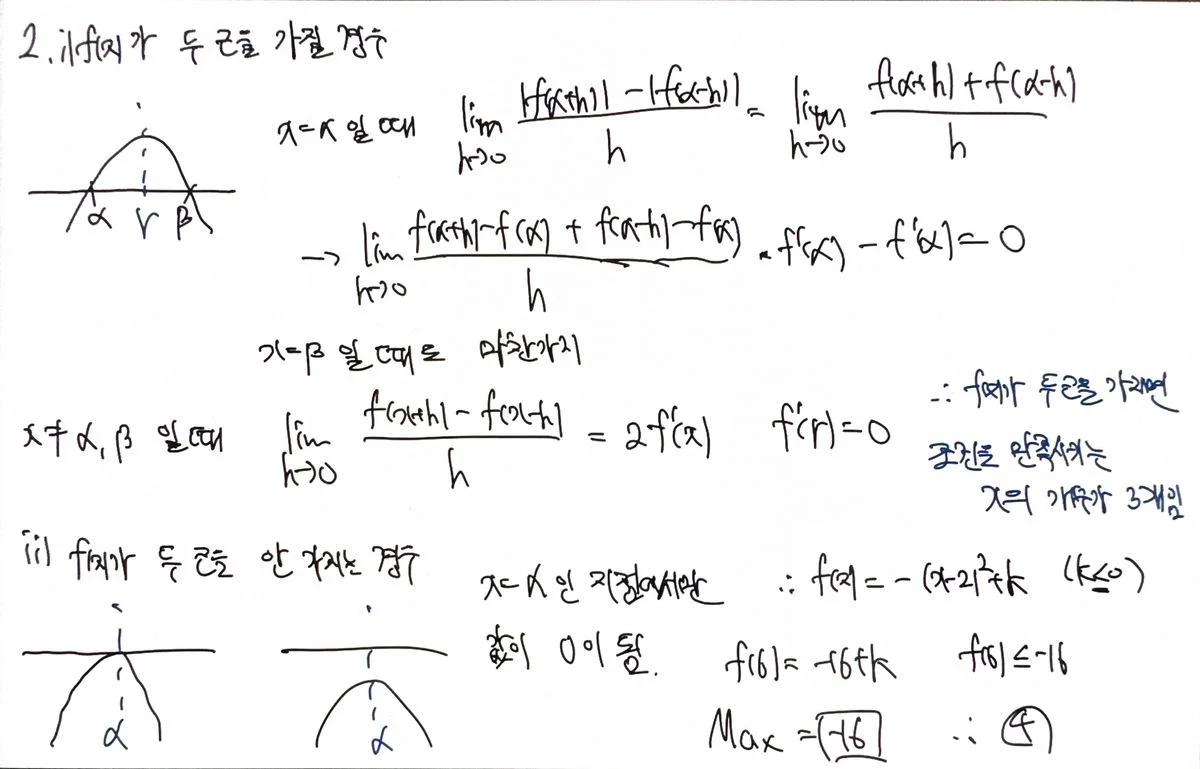 2. i) f(x)가 두 근을 가질 경우
x=α 일 때 lim h→0 (|f(α+h)| - |f(α-h)|) / h = lim h→0 (f(α+h) + f(α-h)) / h
α γ β
→ lim h→0 (f(α+h)-f(α) + f(α-h)-f(α)) / h = f'(α) - f'(α) = 0
x=β 일 때도 마찬가지
x≠α, β 일 때 lim h→0 (f(x+h) - f(x-h)) / h = 2f'(x) f'(γ)=0
∴ f(x)가 두 근을 가지면
조건을 만족시키는
x의 개수가 3개임
ii) f(x)가 두 근을 안 가지는 경우
α α
x=α인 지점에서만
값이 0이 됨.
∴ f(x) = -(x-2)²+k (k≤0)
f(6) = -16+k f(6) ≤ -16
Max = -16 ∴ ④